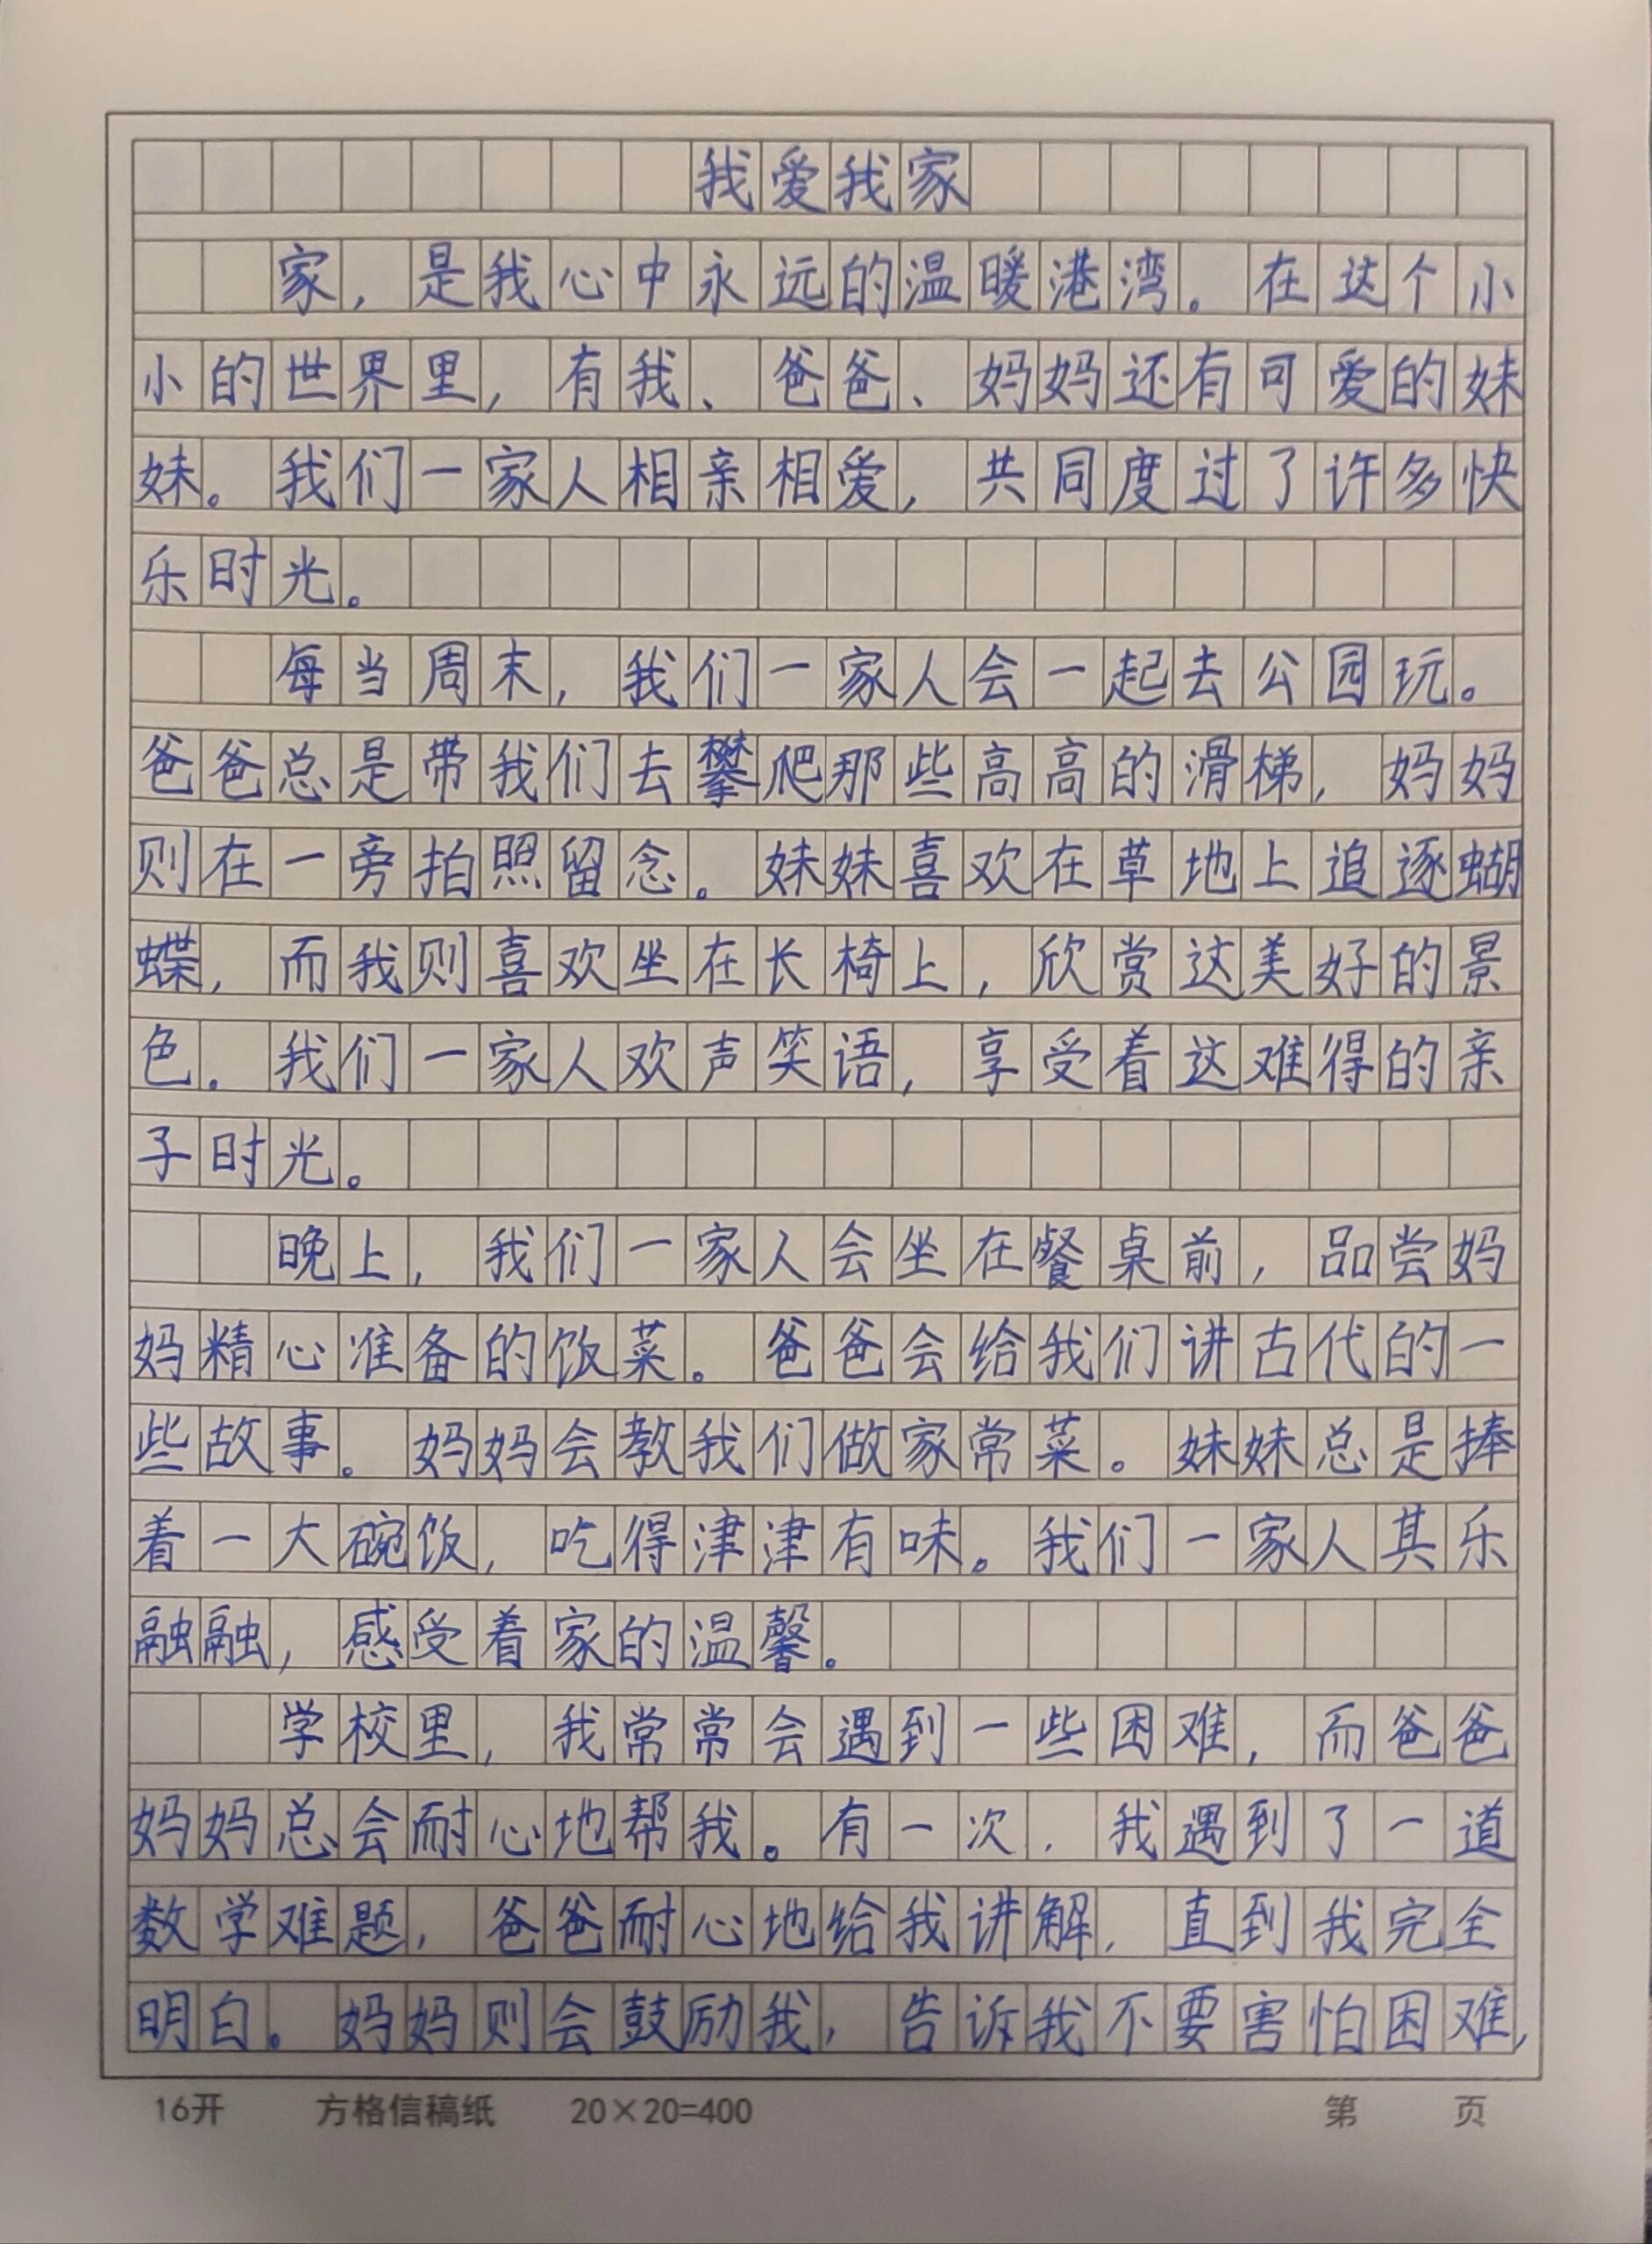 我爱我家
家，是我心中永远的温暖港湾。在这个小
小的世界里，有我、爸爸、妈妈还有可爱的妹
妹。我们一家人相亲相爱，共同度过了许多快
乐时光。
每当周末，我们一家人会一起去公园玩。
爸爸总是带我们去攀爬那些高高的滑梯，妈妈
则在一旁拍照留念。妹妹喜欢在草地上追逐蝴
蝶，而我则喜欢坐在长椅上，欣赏这美好的景
色。我们一家人欢声笑语，享受着这难得的亲
子时光。
晚上，我们一家人会坐在餐桌前，品尝妈
妈精心准备的饭菜。爸爸会给我们讲古代的一
些故事。妈妈会教我们做家常菜。妹妹总是捧
着一大碗饭，吃得津津有味。我们一家人其乐
融融，感受着家的温馨。
学校里，我常常会遇到一些困难，而爸爸
妈妈总会耐心地帮我。有一次，我遇到了一道
数学难题，爸爸耐心地给我讲解，直到我完全
明白。妈妈则会鼓励我，告诉我不要害怕困难，
16开 方格信稿纸 20×20=400 第 页